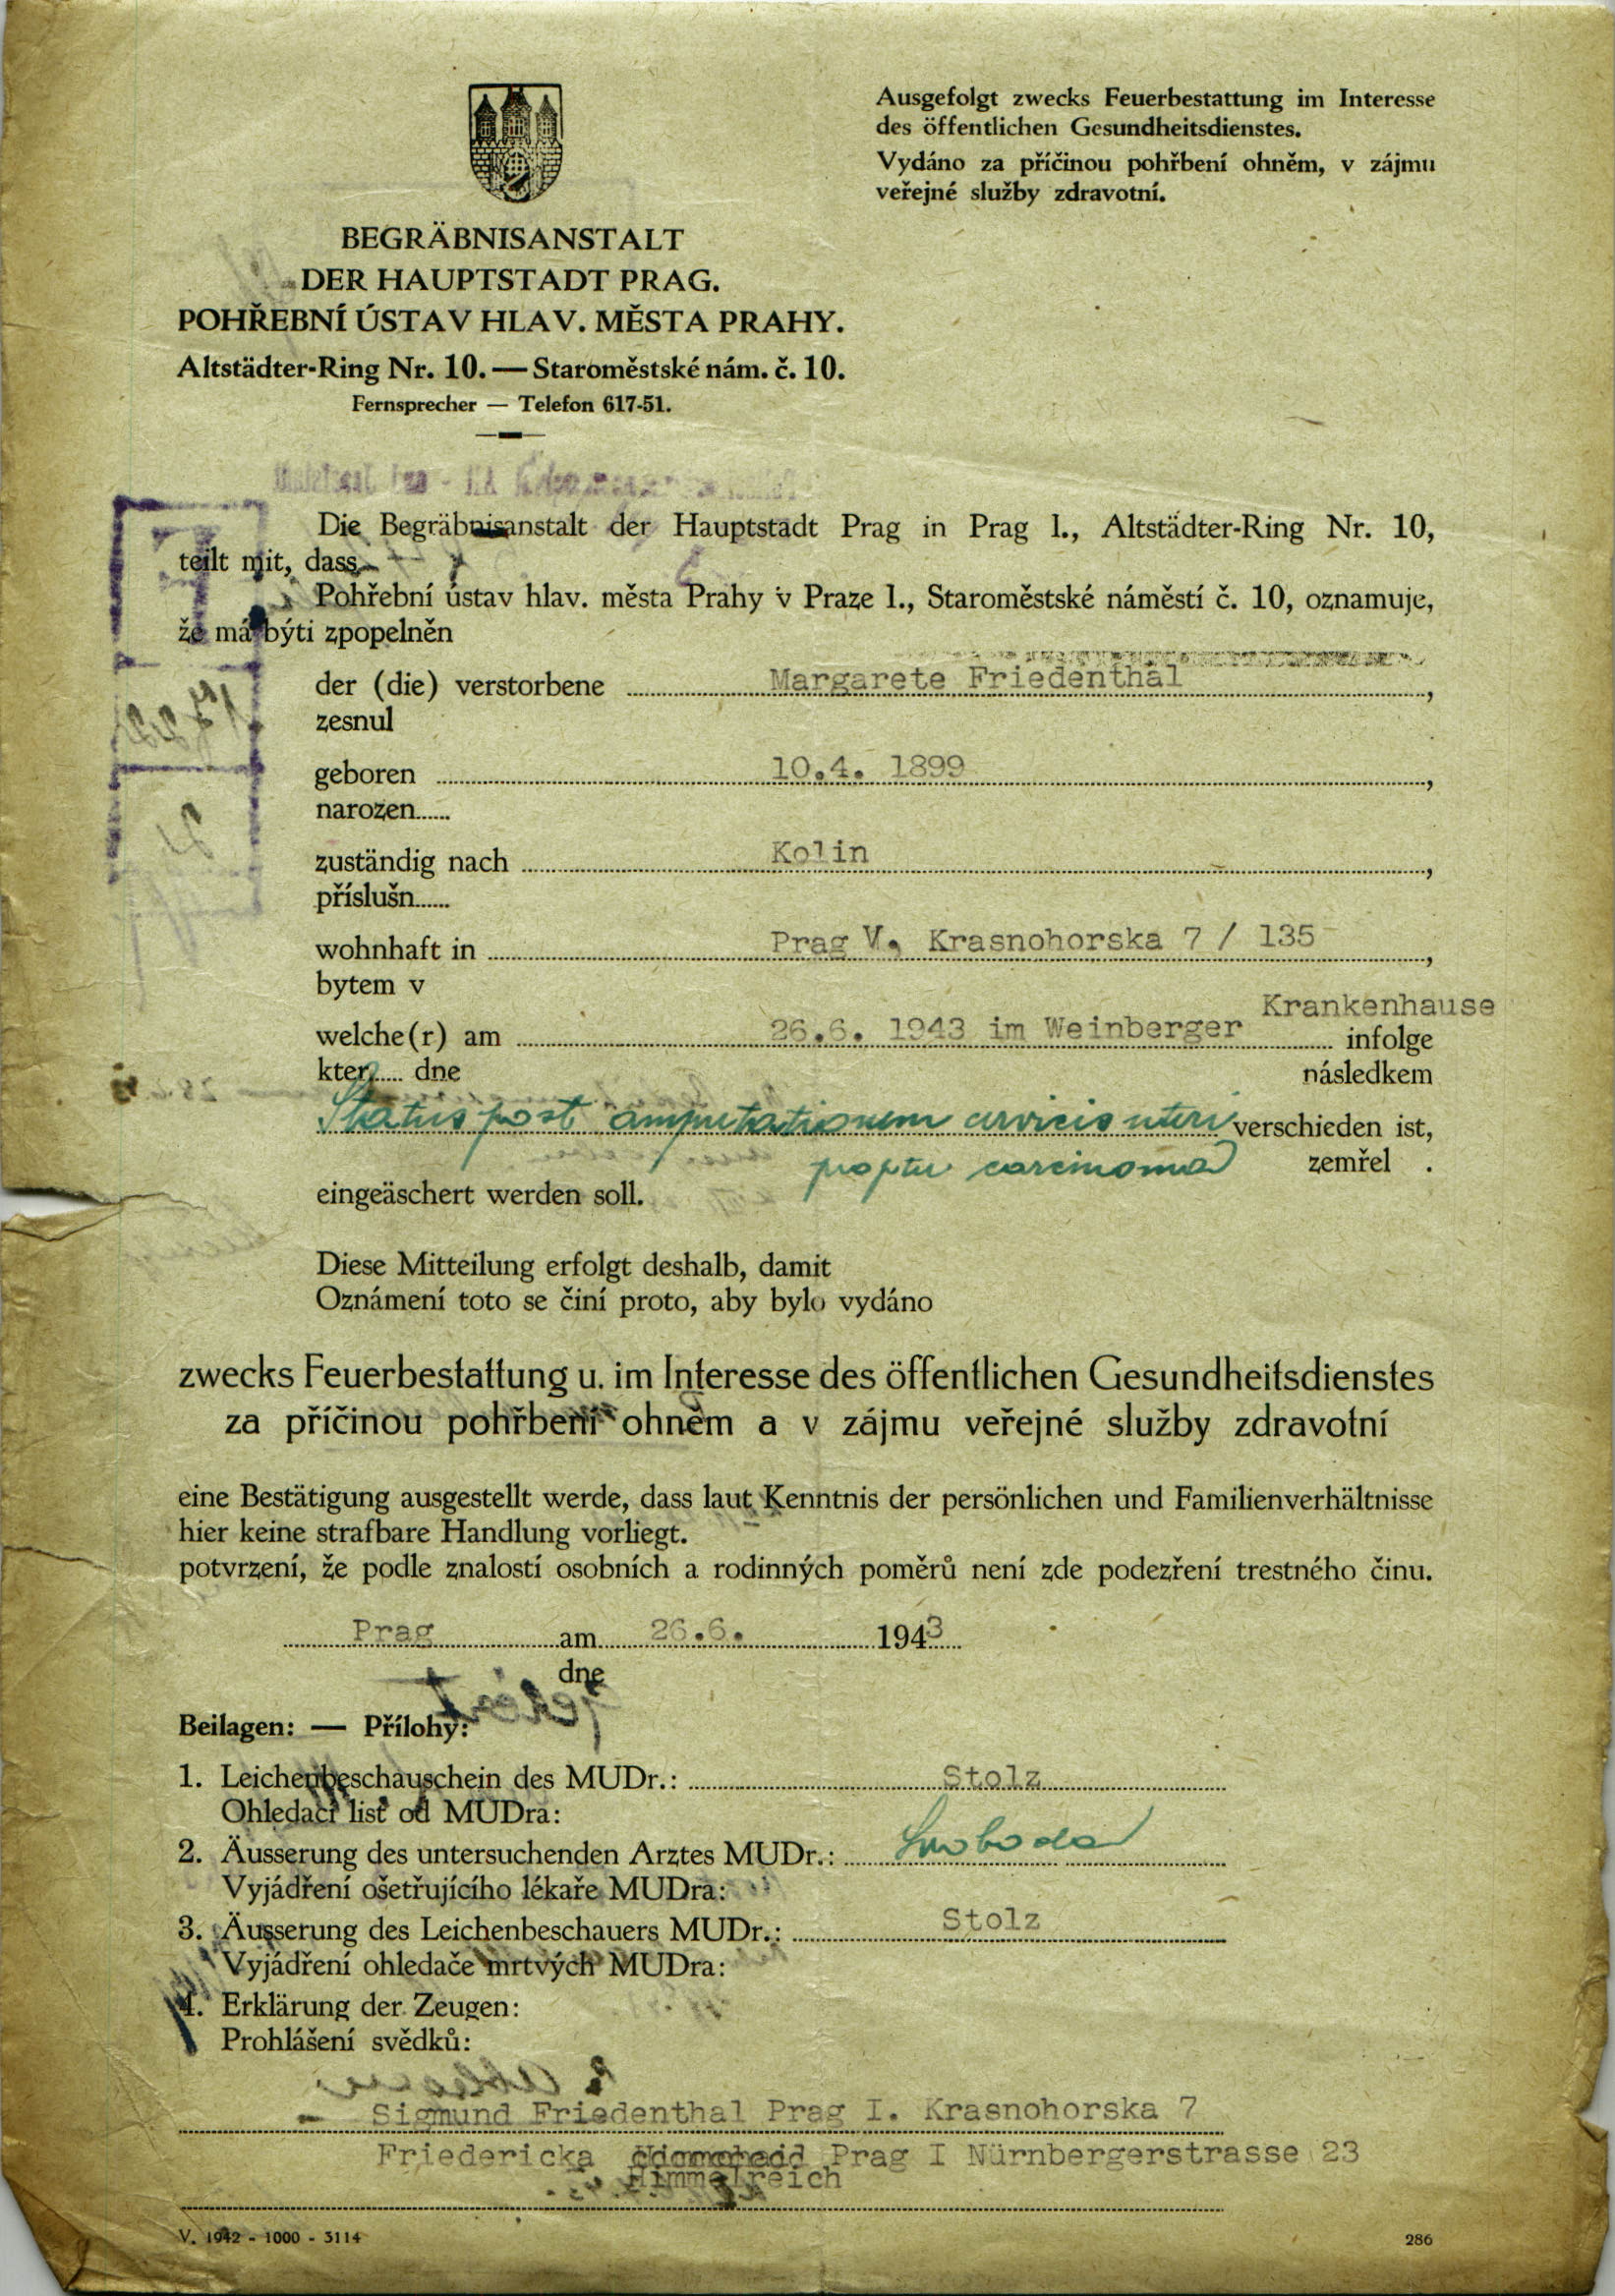 Ausgefolgt zwecks Feuerbestattung im Interesse
des öffentlichen Gesundheitsdienstes.
Vydáno za příčinou pohřbení ohněm, v zájmu
veřejné služby zdravotní.
BEGRÄBNISANSTALT
DER HAUPTSTADT PRAG.
POHŘEBNÍ ÚSTAV HLAV. MĚSTA PRAHY.
Altstädter-Ring Nr. 10. — Staroměstské nám. č. 10.
Fernsprecher — Telefon 617-51.
Die Begräbnisanstalt der Hauptstadt Prag in Prag I., Altstädter-Ring Nr. 10,
teilt mit, dass
Pohřební ústav hlav. města Prahy v Praze I., Staroměstské náměstí č. 10, oznamuje,
že má býti zpopelněn
der (die) verstorbene Margarete Friedenthal,
zesnul
geboren 10.4. 1899,
narozen......
zuständig nach Kolin,
příslušn......
wohnhaft in Prag V., Krasnohorska 7 / 135,
bytem v
Krankenhause
welche(r) am 26.6. 1943 im Weinberger infolge
kter...... dne následkem
Status post amputationem cervicis uteri verschieden ist,
propter carcinoma zemřel .
eingeäschert werden soll.
Diese Mitteilung erfolgt deshalb, damit
Oznámení toto se činí proto, aby bylo vydáno
zwecks Feuerbestattung u. im Interesse des öffentlichen Gesundheitsdienstes
za příčinou pohřbení ohněm a v zájmu veřejné služby zdravotní
eine Bestätigung ausgestellt werde, dass laut Kenntnis der persönlichen und Familienverhältnisse
hier keine strafbare Handlung vorliegt.
potvrzení, že podle znalostí osobních a rodinných poměrů není zde podezření trestného činu.
Prag am 26.6. 1943
dne
Beilagen: — Přílohy:
1. Leichenbeschauschein des MUDr.: Stolz
Ohledací list od MUDra:
2. Äusserung des untersuchenden Arztes MUDr.: Svoboda
Vyjádření ošetřujícího lékaře MUDra:
3. Äusserung des Leichenbeschauers MUDr.: Stolz
Vyjádření ohledače mrtvých MUDra:
4. Erklärung der Zeugen:
Prohlášení svědků:
Sigmund Friedenthal Prag I. Krasnohorska 7
Friedericka Prag I Nürnbergerstrasse 23
Himmelreich
V. 1942 - 1000 - 3114
286